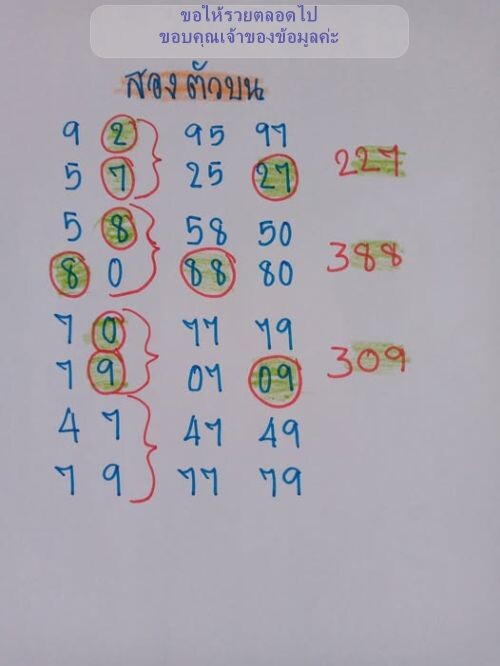 ขอให้รวยตลอดไป
ขอบคุณเจ้าของข้อมูลค่ะ
สองตัวบน
9 2 95 97
5 7 25 27 227
5 8 58 50
8 0 88 80 388
7 0 77 79
7 9 07 09 309
4 7 47 49
7 9 77 79